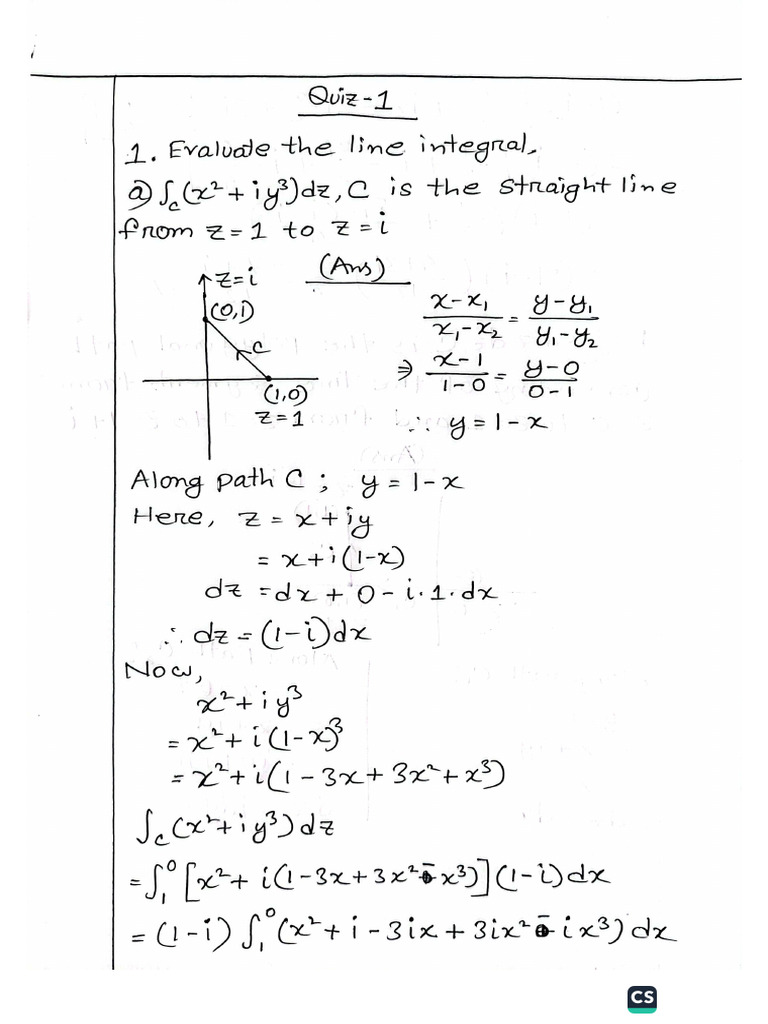 Quiz-1
1. Evaluate the line integral,
ⓐ ∫_C (x² + iy³)dz, C is the straight line
from z = 1 to z = i
(Ans)
z = i
(0,1)
C
(1,0)
z = 1
(x - x₁)/(x₁ - x₂) = (y - y₁)/(y₁ - y₂)
⇒ (x - 1)/(1 - 0) = (y - 0)/(0 - 1)
∴ y = 1 - x
Along path C ; y = 1 - x
Here, z = x + iy
= x + i(1-x)
dz = dx + 0 - i.1.dx
∴ dz = (1-i)dx
Now,
x² + iy³
= x² + i(1-x)³
= x² + i(1 - 3x + 3x² + x³)
∫_C (x² + iy³)dz
= ∫₁⁰ [x² + i(1 - 3x + 3x² - x³)](1-i)dx
= (1-i) ∫₁⁰ (x² + i - 3ix + 3ix² - ix³)dx
CS